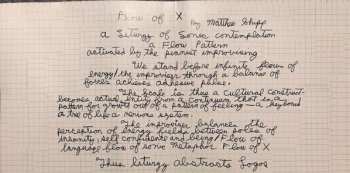 Flow of X by Matthew Shipp
a Liturgy of Sonic contemplation
a Flow Pattern
activated by the pianist improvising
We stand before infinite flow of
energy/the improviser through a balance of
forces achieves adhesive place.
The scale is thus a cultural construct-
becomes actual entity from a continuum that is a
pattern for growth out of a pattern of feeling-a beyond
a tree of life a nervous system.
The improviser balances the
perception of energy fields between poles of
insanity, self confidence and being/Flow of
language flow of sonic metaphor Flow of X
Thus liturgy abstracts Logos